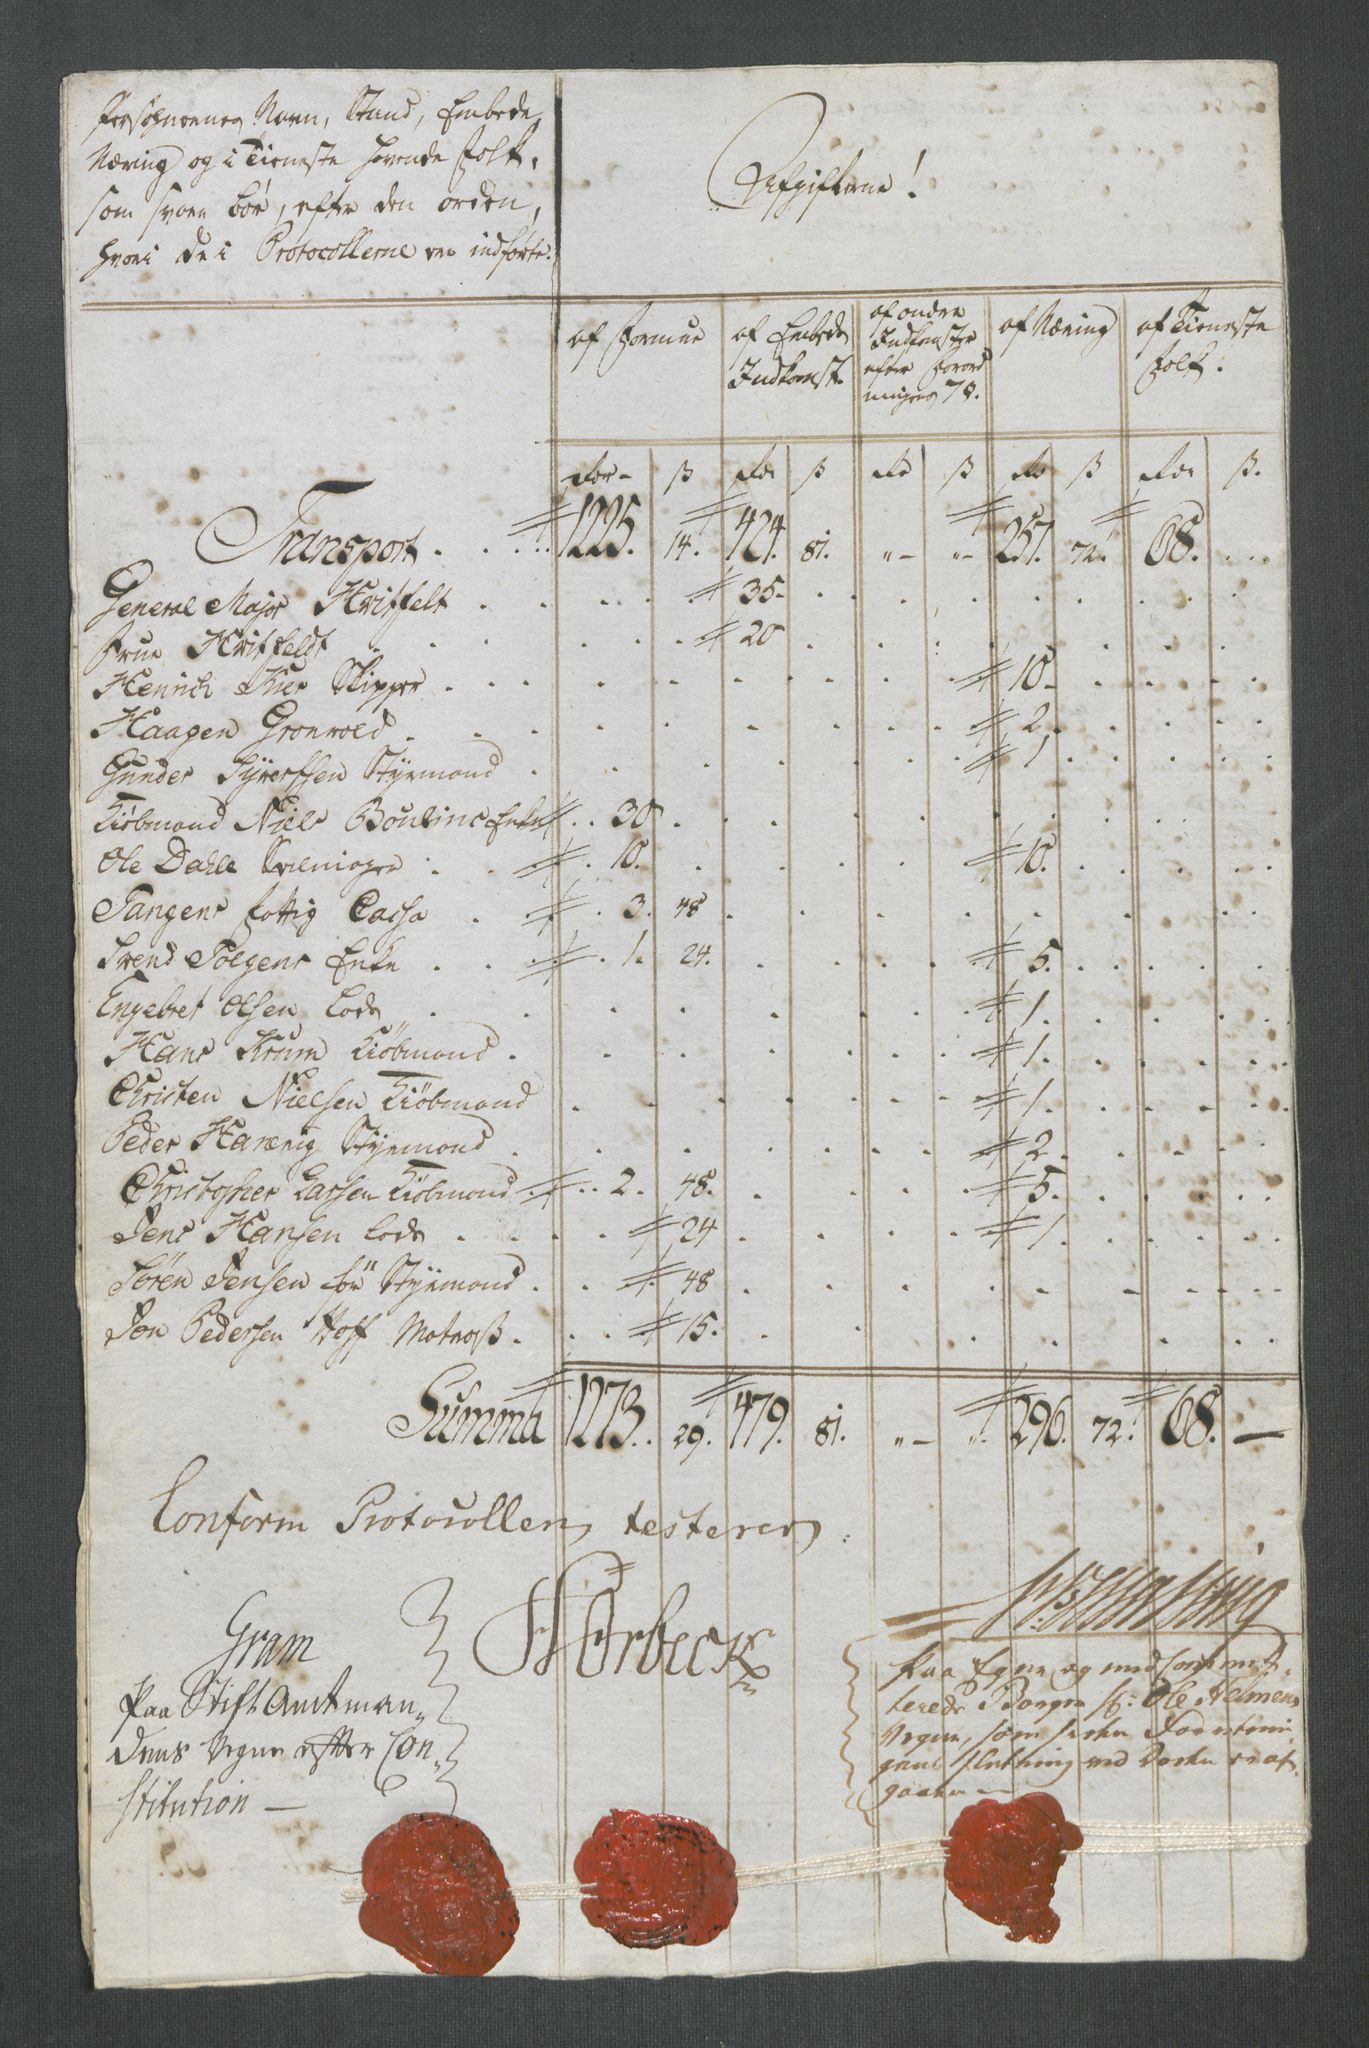 Personernes Navn, Stand, Embede,
Næring og i Tieneste havende Folk,
som svare bör, efter den orden,
hvori de i Protocollerne ere indförte.
Afgifterne!
af Formue
af Embeds Indkomst.
af andre Indkomster efter Forordningens 7 §.
af Næring
af Tieneste Folk.
rdr ß rdr ß rd ß rd ß rdr ß.
Transport . . . 1225. 14. 424. 81. „– „– 257. 72. 68. . . .
General Major Hvitfelt . . . 35.
Frue Hvitfeldt . . . 20
Henrich Kier Skipper . . . 10–
Haagen Gronvold . . . 2.
Gunder Syversen Styrmand . . . 1.
Kiöbmand Niels Boulins Enke . . 30
Ole Dahle . 10. . . . 10.
Tangens fattig Cassa . . 3. 48
Svend Solgens Enke . . . 1. 24. . . . 5.
Engebret Olsen Lods . . . 1.
Hans Krum Kiöbmand . . . 1.
Christen Nielsen Kiöbmand . . . 1.
Peder Harænig Styrmand . . . 2.
Christopher Lassen Kiöbmand . . 2. 48. . . . 5.
Jens Hansen Lods . . . 24 . . . 1.
Sören Jensen för Styrmand . . 48
Jon Pedersen Hoff Matros . . . 15.
Summa 1273. 29. 479. 81. „– „. 296. 72. 68. —
Conform Protocollen testerer
Gram
paa Stift Amtman„
dens Vegne efter Con„
stitution —
Hörbeck
paa Egne og med Committerede
Borger Sr: Ole Nelmens
Vegne, som före Forretningens
slutning ved Döden er af„
gaaen —